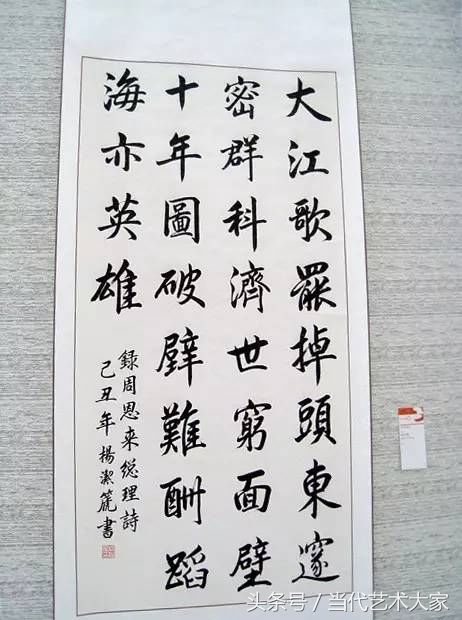 大江歌罷掉頭東邃
密群科濟世窮面壁
十年圖破壁難酬蹈
海亦英雄
錄周恩来総理詩
己丑年楊潔篪書
头条号 / 当代艺术大家